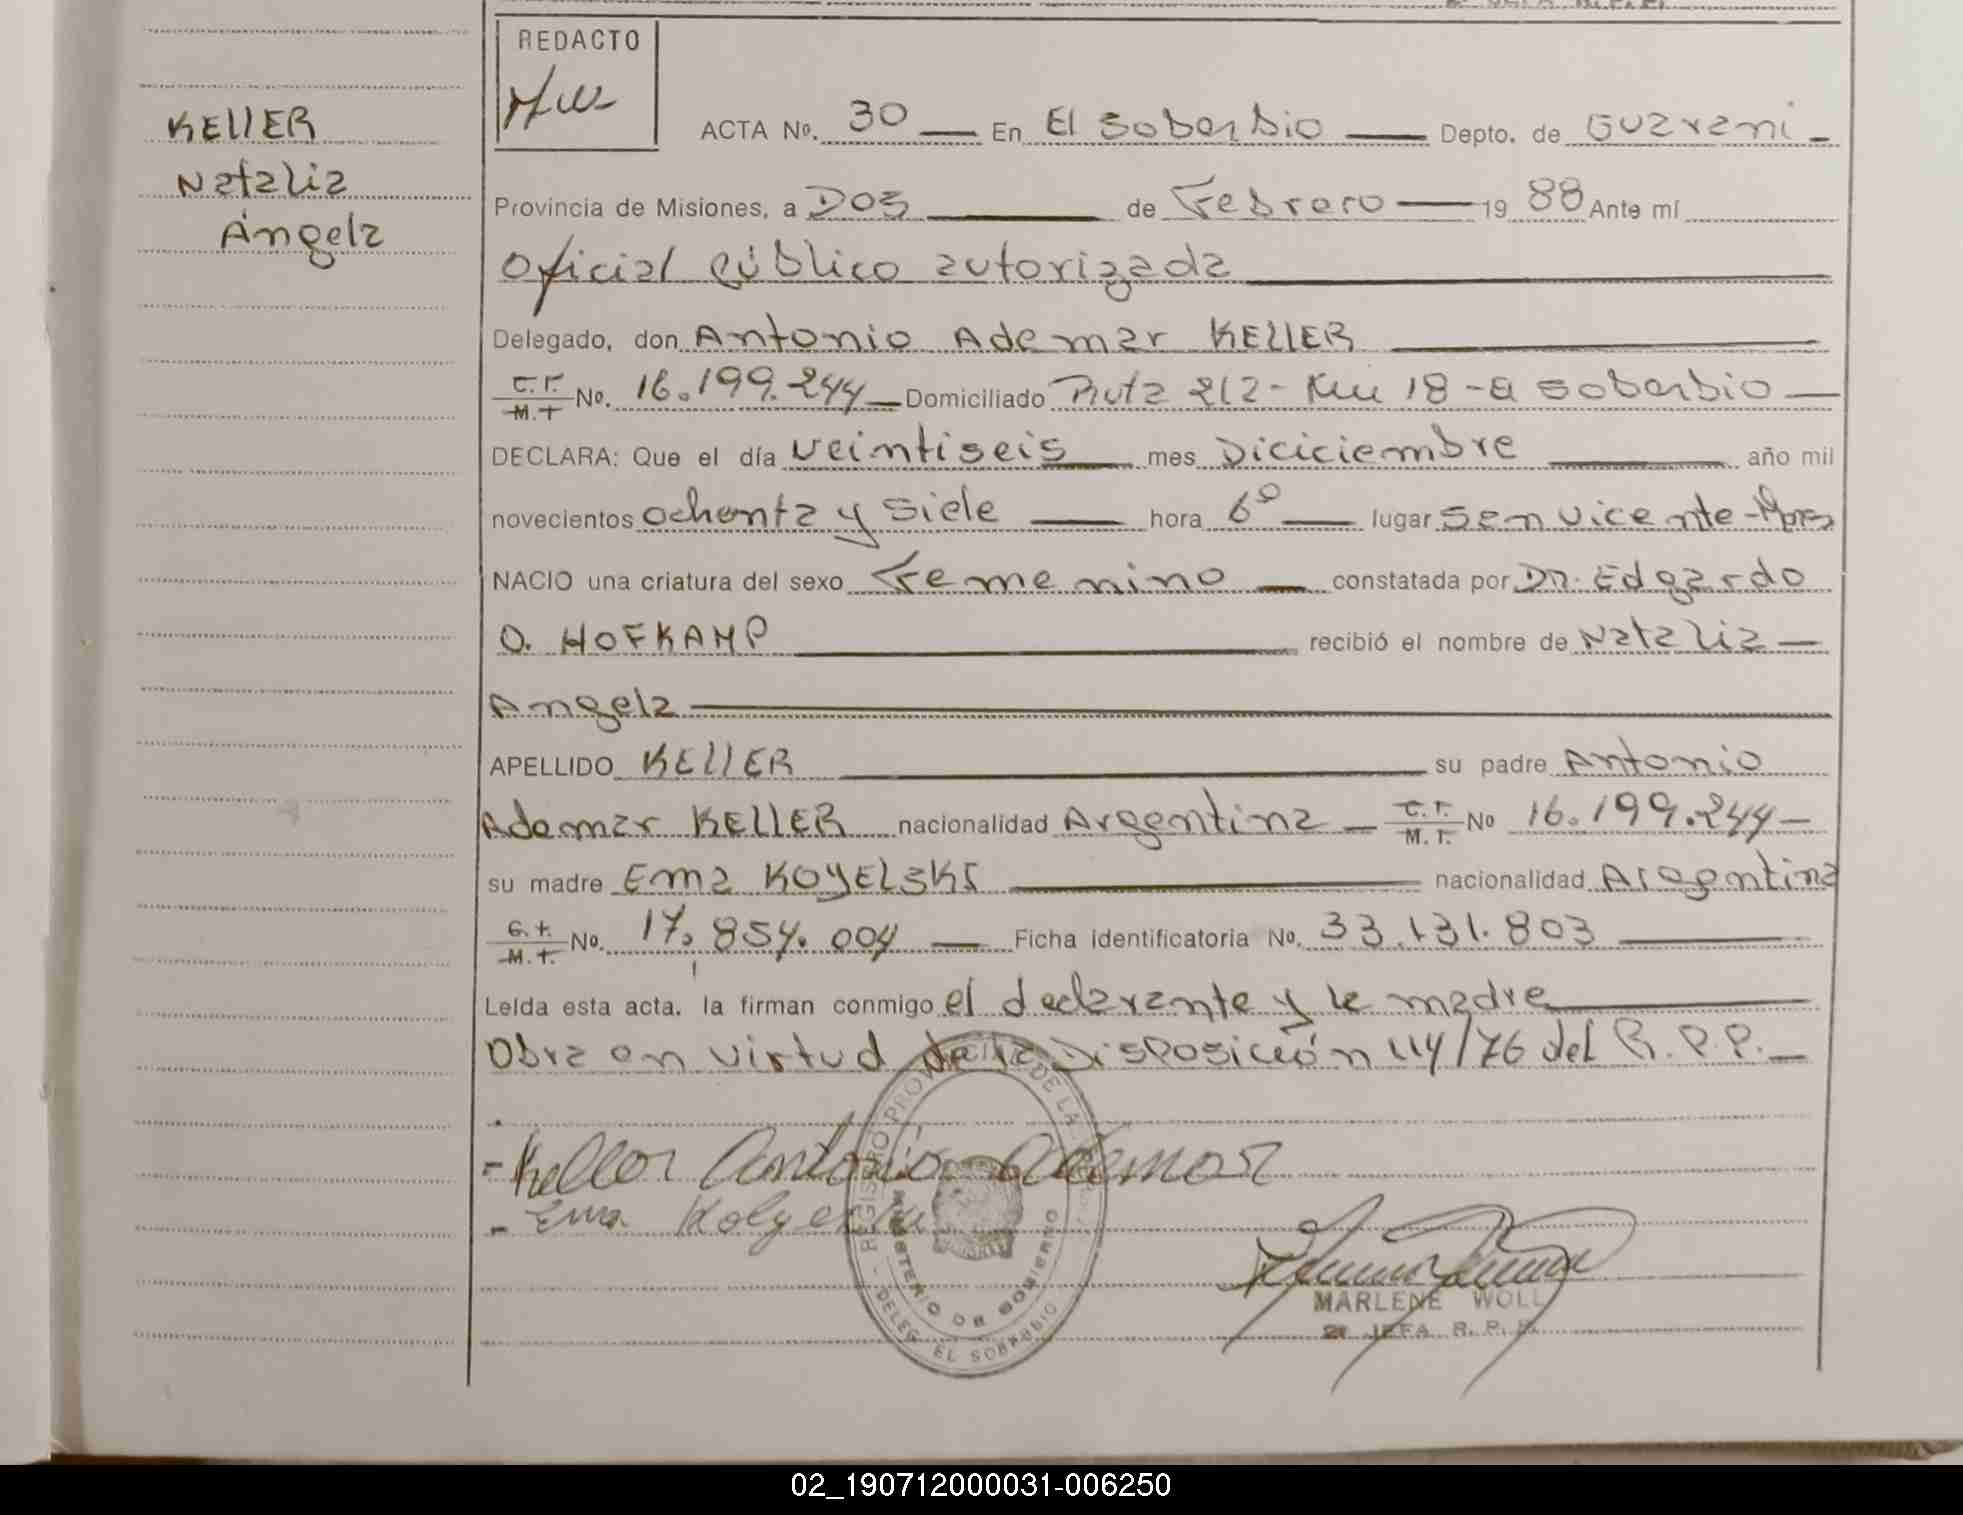 KELLER
Natalia
Angela
REDACTO
ACTA Nº. 30 — En El Soberbio — Depto. de Guarani -
Provincia de Misiones, a Dos — de Febrero — 19 88 Ante mí
Oficial público autorizada
Delegado, don Antonio Ademar KELLER
C.I. M.I. Nº. 16.199.244 — Domiciliado Ruta 212 - Km 18 - El Soberbio —
DECLARA: Que el día veintiseis — mes Diciciembre — año mil
novecientos ochenta y siete — hora 6º — lugar San Vicente - Mnes
NACIO una criatura del sexo Femenino — constatada por Dr. Edgardo
O. HOFKAMP — recibió el nombre de Natalia —
Angela —
APELLIDO KELLER — su padre Antonio
Ademar KELLER nacionalidad Argentina — C.I. M.I. Nº 16.199.244 —
su madre Ema KOYELSKI — nacionalidad Argentina
C.I. M.I. Nº. 17.854.004 — Ficha identificatoria Nº. 33.131.803 —
Leída esta acta, la firman conmigo el declarante y la madre
Obra en virtud de la Disposición 114/76 del R.P.P. —
- Keller Antonio Ademar
- Ema
REGISTRO PROV DE LA
MINISTERIO DE GOBIERNO
DELEG. EL SOBERBIO
MARLENE WOLL
2ª JEFA R.P.P.
02_190712000031-006250